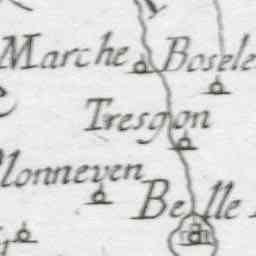 Marche Bosele
Tresgon
lonneven
Belle